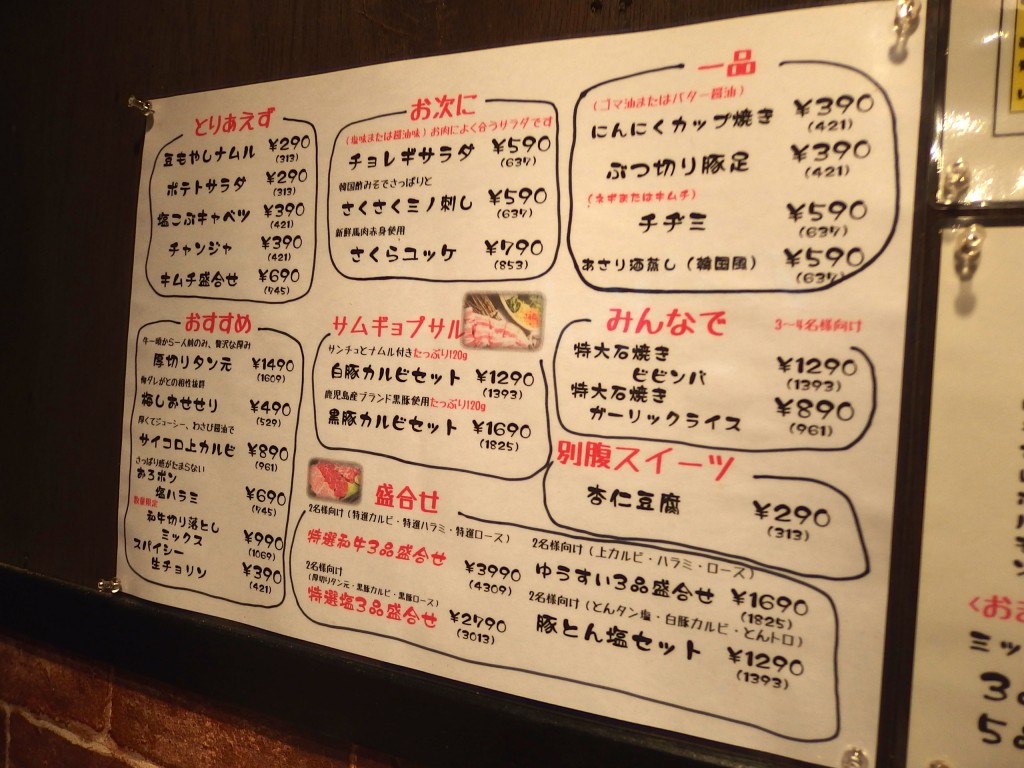 とりあえず
豆もやしナムル ¥290
(313)
ポテトサラダ ¥290
(313)
塩こぶキャベツ ¥390
(421)
チャンジャ ¥390
(421)
キムチ盛合せ ¥690
(745)
お次に
(塩味または醤油味) お肉によく合うサラダです
チョレギサラダ ¥590
(637)
韓国酢みそでさっぱりと
さくさくミノ刺し ¥590
(637)
新鮮馬肉赤身使用
さくらユッケ ¥790
(853)
一品
(ゴマ油またはバター醤油)
にんにくカップ焼き ¥390
(421)
ぶつ切り豚足 ¥390
(421)
(ネギまたはキムチ)
チヂミ ¥590
(637)
あさり酒蒸し(韓国風) ¥590
(637)
おすすめ
牛一頭から一人前のみ、贅沢な厚み
厚切りタン元 ¥1490
(1609)
梅ダレがとの相性抜群
梅しおせせり ¥490
(529)
厚くてジューシー、わさび醤油で
サイコロ上カルビ ¥890
(961)
さっぱり感がたまらない
おろポン
塩ハラミ ¥690
(745)
数量限定
和牛切り落とし
ミックス ¥990
(1069)
スパイシー
生チョリソ ¥390
(421)
サムギョプサル
サンチョとナムル付きたっぷり120g
白豚カルビセット ¥1290
(1393)
鹿児島産ブランド黒豚使用たっぷり120g
黒豚カルビセット ¥1690
(1825)
みんなで 3〜4名様向け
特大石焼き
ビビンバ ¥1290
(1393)
特大石焼き
ガーリックライス ¥890
(961)
別腹スイーツ
杏仁豆腐 ¥290
(313)
盛合せ
2名様向け(特選カルビ・特選ハラミ・特選ロース)
特選和牛3品盛合せ ¥3990
(4309)
2名様向け
(厚切りタン元・黒豚カルビ・黒豚ロース)
特選塩3品盛合せ ¥2790
(3013)
2名様向け(上カルビ・ハラミ・ロース)
ゆうすい3品盛合せ ¥1690
(1825)
2名様向け(とんタン塩・白豚カルビ・とんトロ)
豚とん塩セット ¥1290
(1393)